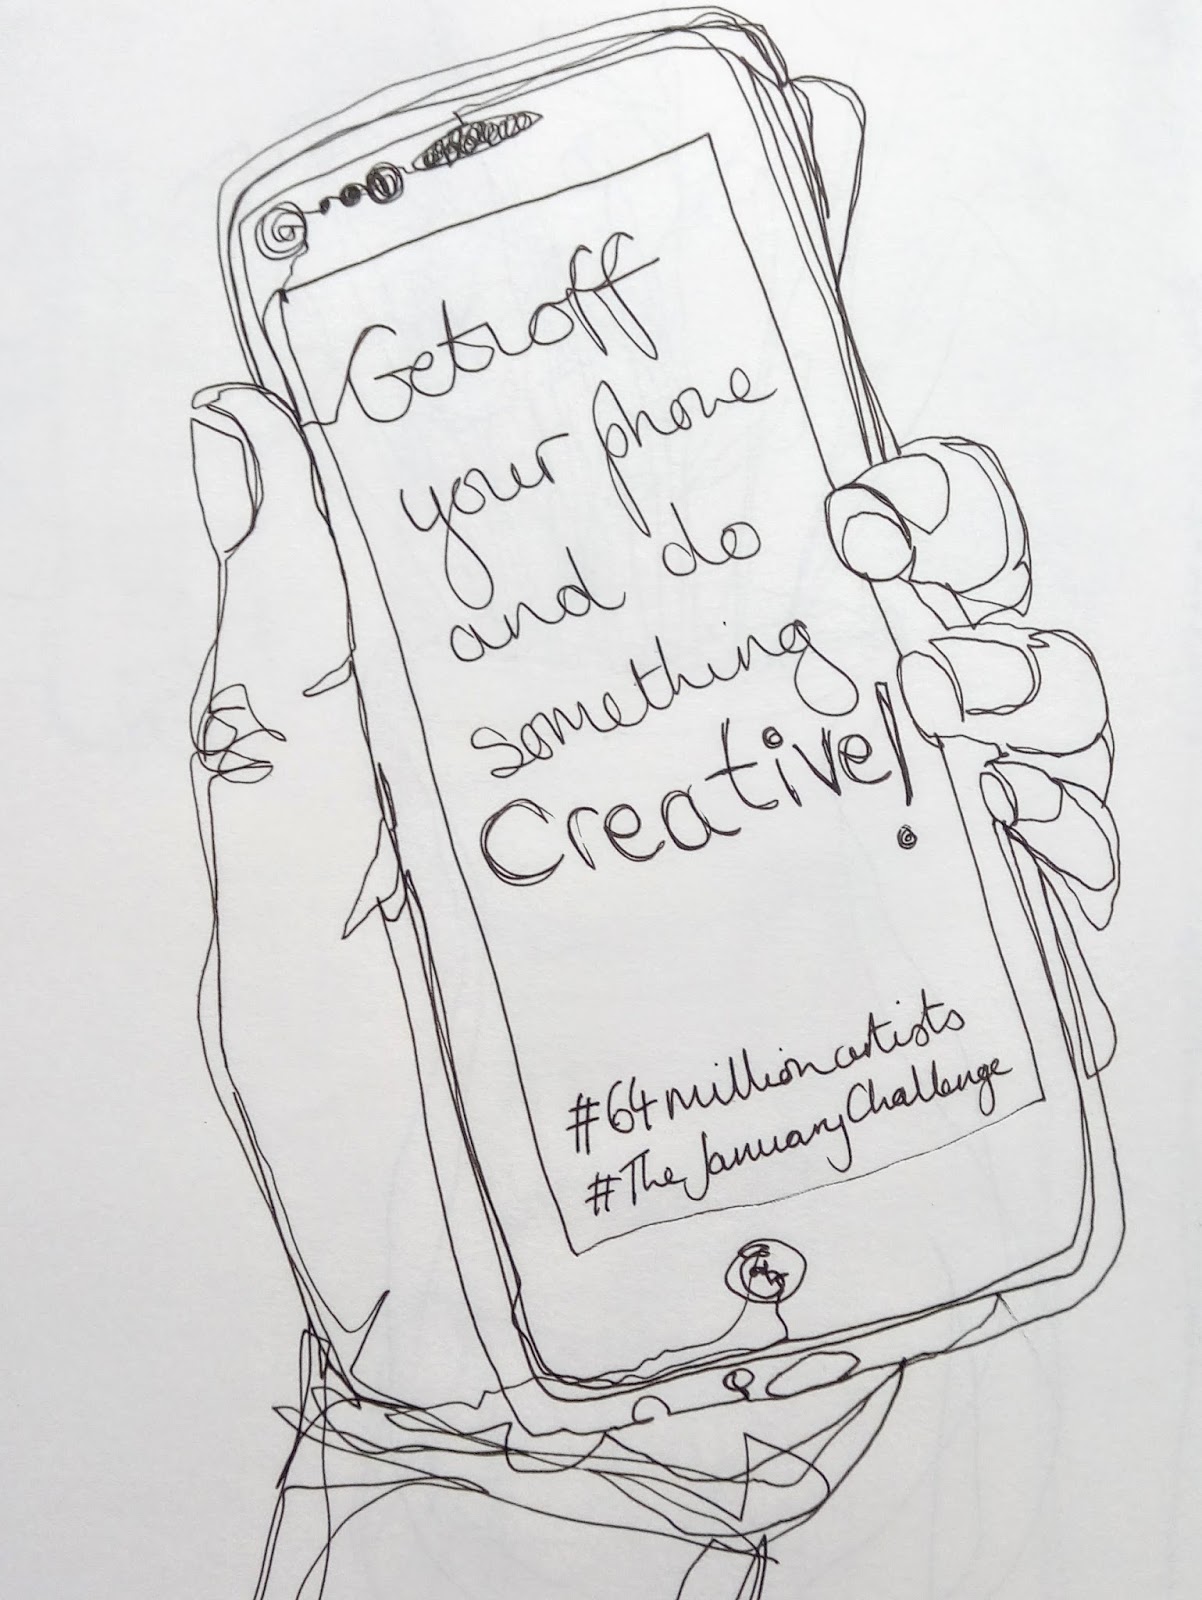 Get off
your phone
and do
something
Creative!
#64millionartists
#TheJanuaryChallenge